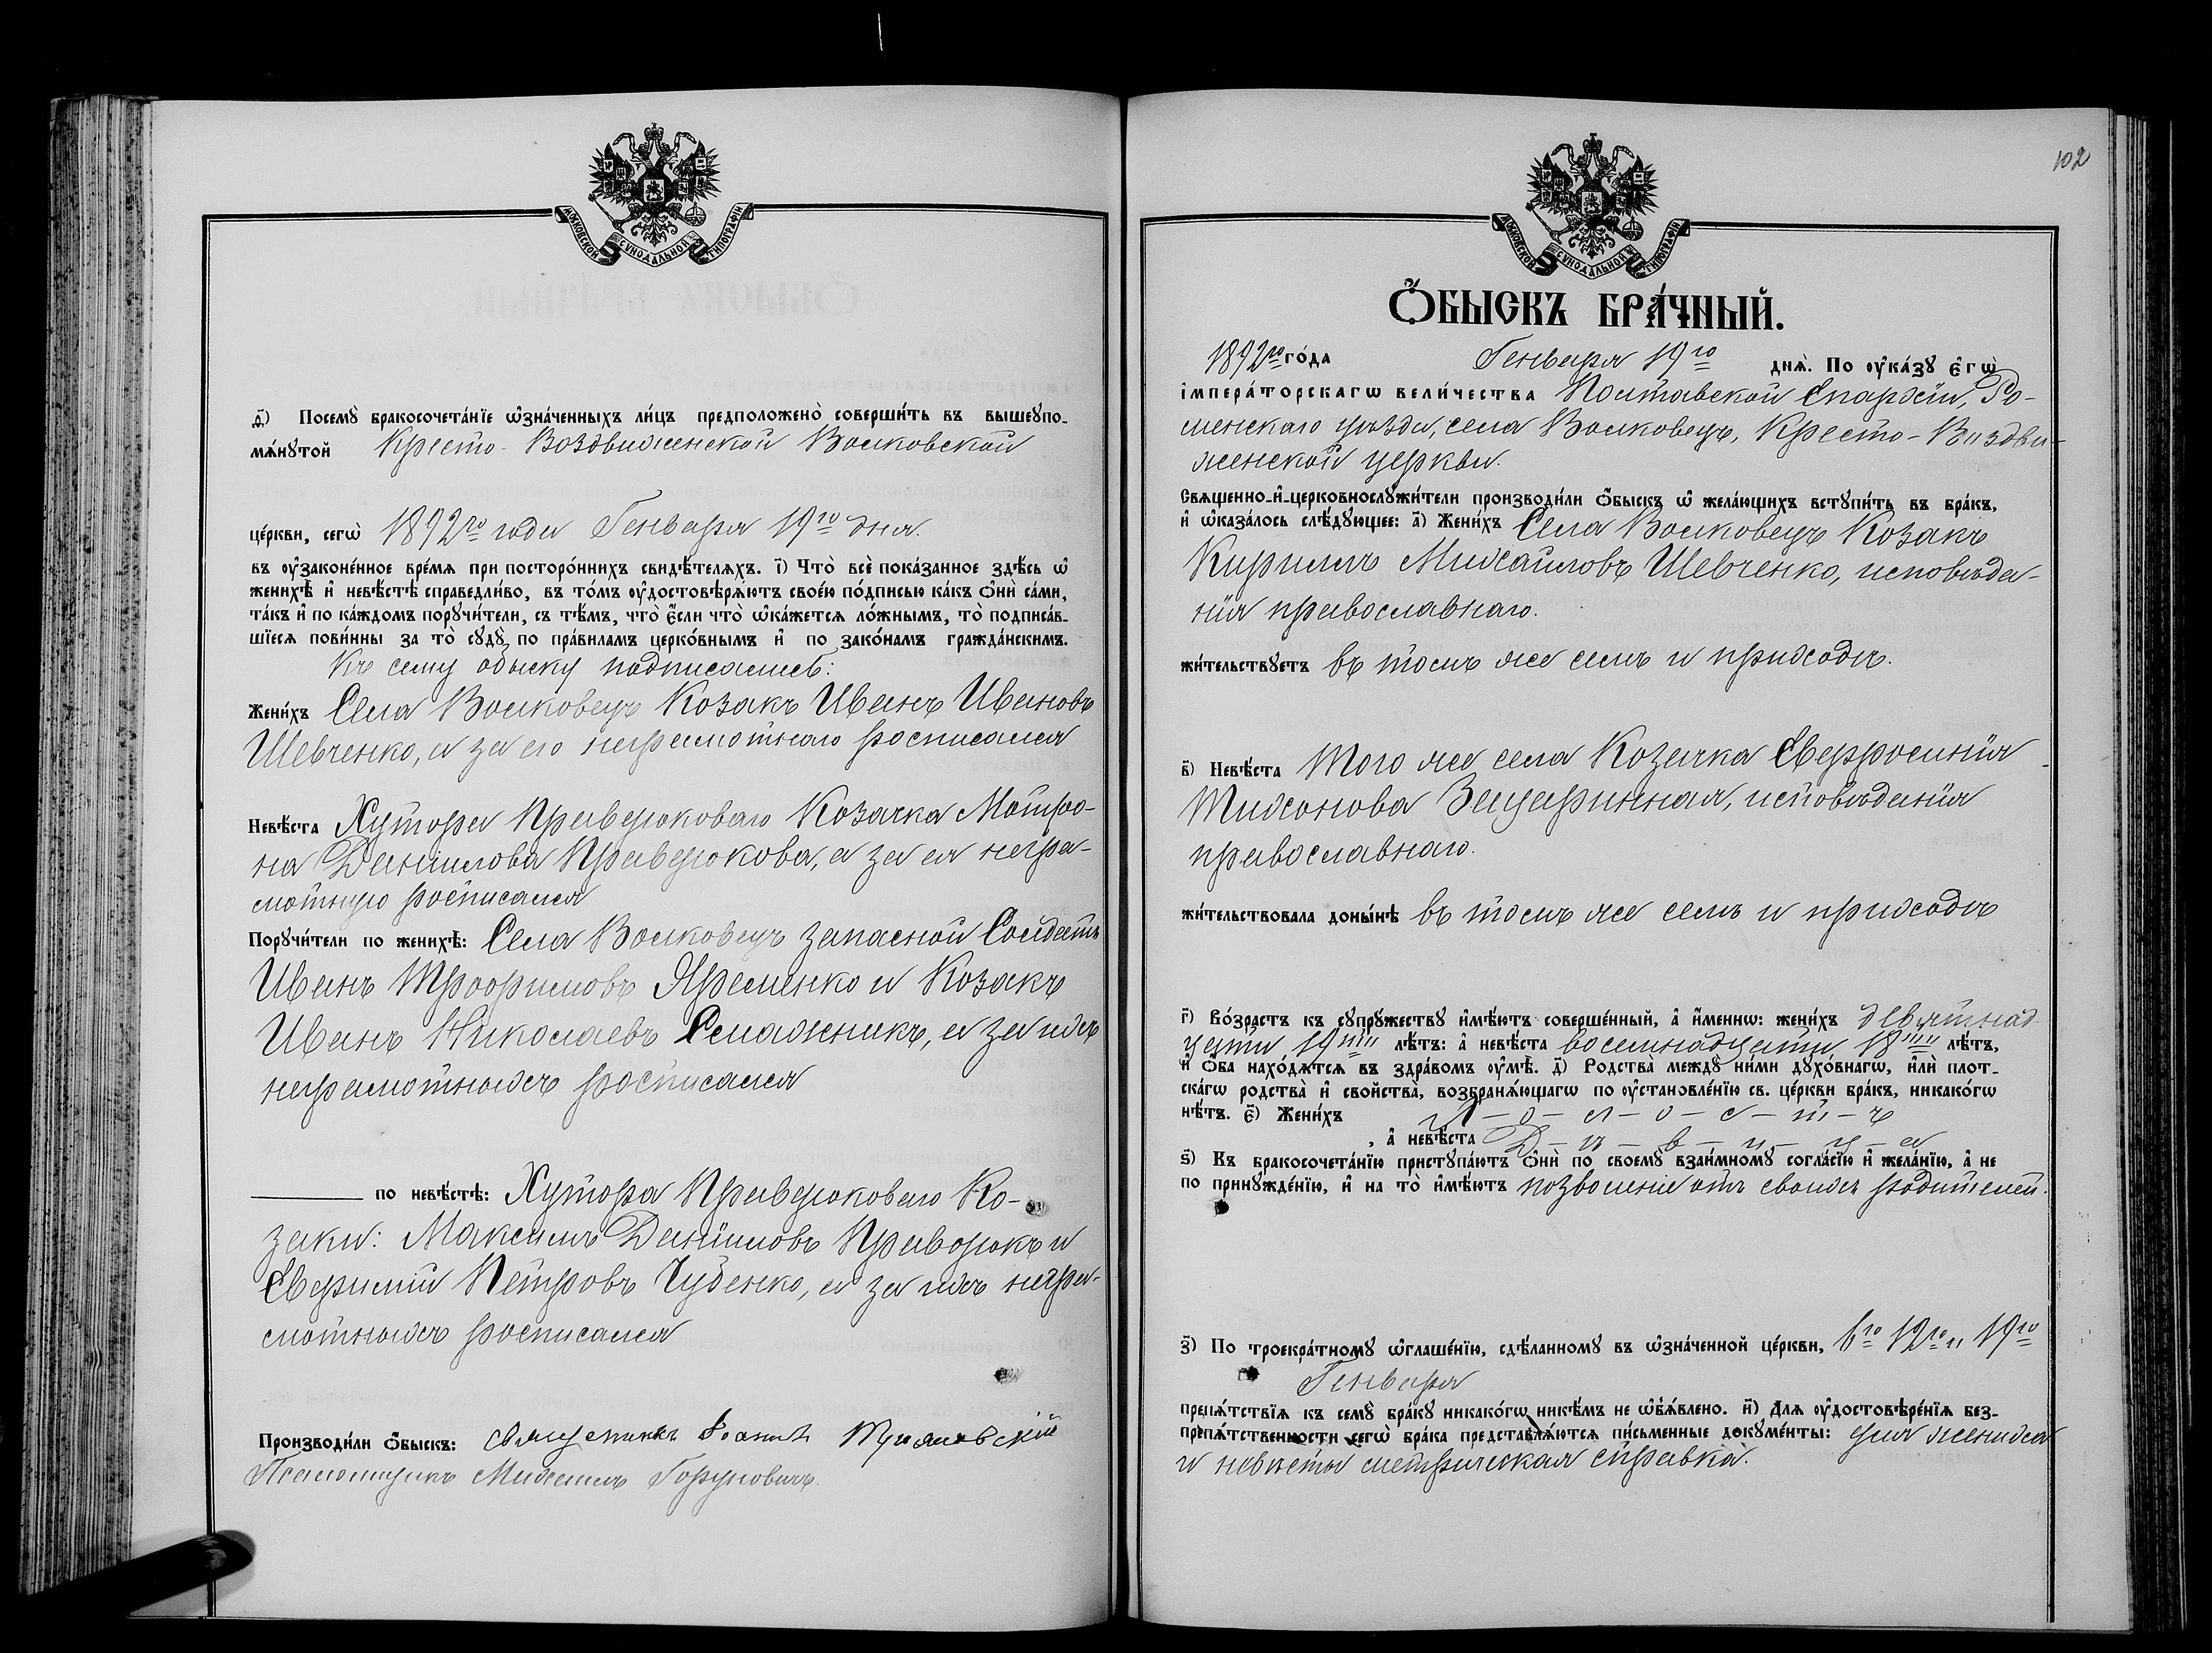 МОСКОВСКОЙ СѴНОДАЛЬНОЙ ТИПОГРАФІИ
д҃) Посемꙋ̀ бракосочета́нїе ѡ҆зна́ченныхъ ли́цъ предположено̀ соверши́ть въ вышеꙋпо-
мѧ́нꙋтой Кресто-Воздвиженской Волковской
це́ркви, сегѡ̀ 1892го года Генваря 19го дня.
въ ᲂу҆законе́нное вре́мѧ при посторо́ннихъ свидѣ́телѧхъ. і҃) Что̀ всѐ пока́занное здѣ́сь ѡ҆
женихѣ̀ и҆ невѣ́стѣ справедли́во, въ то́мъ ᲂу҆достовѣрѧ́ютъ свое́ю по́дписью ка́къ ѻ҆нѝ са́ми,
та́къ и҆ по ка́ждомъ порꙋчи́тели, съ тѣ́мъ, что̀ є҆́сли что̀ ѡ҆ка́жетсѧ ло́жнымъ, то̀ подписа́в-
шїесѧ пови́нны за то̀ сꙋдꙋ̀ по пра́виламъ церко́внымъ и҆ по зако́намъ гражда́нскимъ.
Къ сему обыску подписались:
Жени́хъ Села Волковецъ Козакъ Иванъ Ивановъ
Шевченко, а за его неграмотнаго росписался
Невѣ́ста Хутора Праверюковаго Козачка Мотро-
на Даніилова Праверюкова, а за ея негра-
мотную росписался
Порꙋчи́тели по женихѣ̀: Села Волковецъ запасной Солдатъ
Иванъ Трофимовъ Яременко и Козакъ
Иванъ Николаевъ Смажникъ, а за ихъ
неграмотныхъ росписался
по невѣ́стѣ: Хутора Праверюковаго Ко-
заки: Максимъ Даніиловъ Праворюкъ и
Евфимій Петровъ Чубенко, а за ихъ негра-
мотныхъ росписался
Производи́ли ѻ҆́быскъ: священникъ Іоаннъ
Псаломщикъ Михаилъ
102
МОСКОВСКОЙ СѴНОДАЛЬНОЙ ТИПОГРАФІИ
Ѻ҆́БЫСКЪ БРА́ЧНЫЙ.
1892го го́да Генваря 19го днѧ̀. По ᲂу҆ка́зꙋ є҆гѡ̀
і҆мпера́торскагѡ вели́чества Полтавской Епархіи, Ро-
менскаго уѣзда, села Волковецъ, Кресто-Воздви-
женской церкви.
Свѧще́нно-и҆-церковнослꙋжи́тели производи́ли ѻ҆́быскъ ѡ҆ жела́ющихъ встꙋпи́ть въ бра́къ,
и҆ ѡ҆каза́лось слѣ́дꙋющее: а҃) Жени́хъ Села Волковецъ Козакъ
Кириллъ Михаиловъ Шевченко, исповѣда-
нія православнаго.
жи́тельствꙋетъ въ томъ же селѣ и приходѣ.
в҃) Невѣ́ста Того же села Козачка Евфросинія
Тихонова Зацаринная, исповѣданія
православнаго.
жи́тельствовала доны́нѣ въ томъ же селѣ и приходѣ
г҃) Во́зрастъ къ сꙋпрꙋ́жествꙋ и҆мѣ́ютъ соверше́нный, а҆ и҆́меннѡ: жени́хъ девятнад-
цати 19ти лѣ́тъ: а҆ невѣ́ста восемнадцати 18ти лѣ́тъ,
и҆ ѻ҆́ба нахо́дѧтсѧ въ здра́вомъ ᲂу҆мѣ̀. д҃) Родства̀ междꙋ̀ ни́ми дꙋхо́внагѡ, и҆лѝ плот-
ска́гѡ родства̀ и҆ сво́йства, возбранѧ́ющагѡ по ᲂу҆становле́нїю св. це́ркви бра́къ, никако́гѡ
нѣ́тъ. є҃) Жени́хъ х-о-л-о-с-т-ъ
, а҆ невѣ́ста Д-ѣ-в-и-ц-а
ѕ҃) Къ бракосочета́нїю пристꙋпа́ютъ ѻ҆нѝ по своемꙋ̀ взаи́мномꙋ согла́сїю и҆ жела́нїю, а҆ не
по принꙋжде́нїю, и҆ на то̀ и҆мѣ́ютъ позволеніе отъ своихъ родителей.
з҃) По троекра́тномꙋ ѡ҆глаше́нїю, сдѣ́ланномꙋ въ ѡ҆зна́ченной це́ркви, 6го 12го и 19го
Генваря
препѧ́тствїѧ къ семꙋ̀ бра́кꙋ никако́гѡ никѣ́мъ не ѡ҆б̾ѧ́влено. и҃) Длѧ ᲂу҆достовѣре́нїѧ без-
препѧ́тственности сегѡ̀ бра́ка представлѧ́ютсѧ пи́сьменные докꙋме́нты: для жениха
и невѣсты метрическая справка.